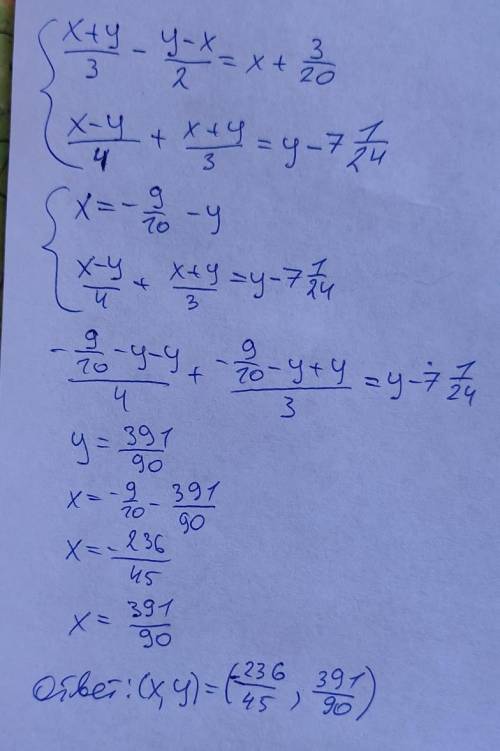 { (x+y)/3 - (y-x)/2 = x + 3/20
(x-y)/4 + (x+y)/3 = y - 7 1/24
{ x = -9/10 - y
(x-y)/4 + (x+y)/3 = y - 7 1/24
(-9/10 - y - y)/4 + (-9/10 - y + y)/3 = y - 7 1/24
y = 391/90
x = -9/10 - 391/90
x = -236/45
x = 391/90
Ответ: (x,y) = (-236/45, 391/90)